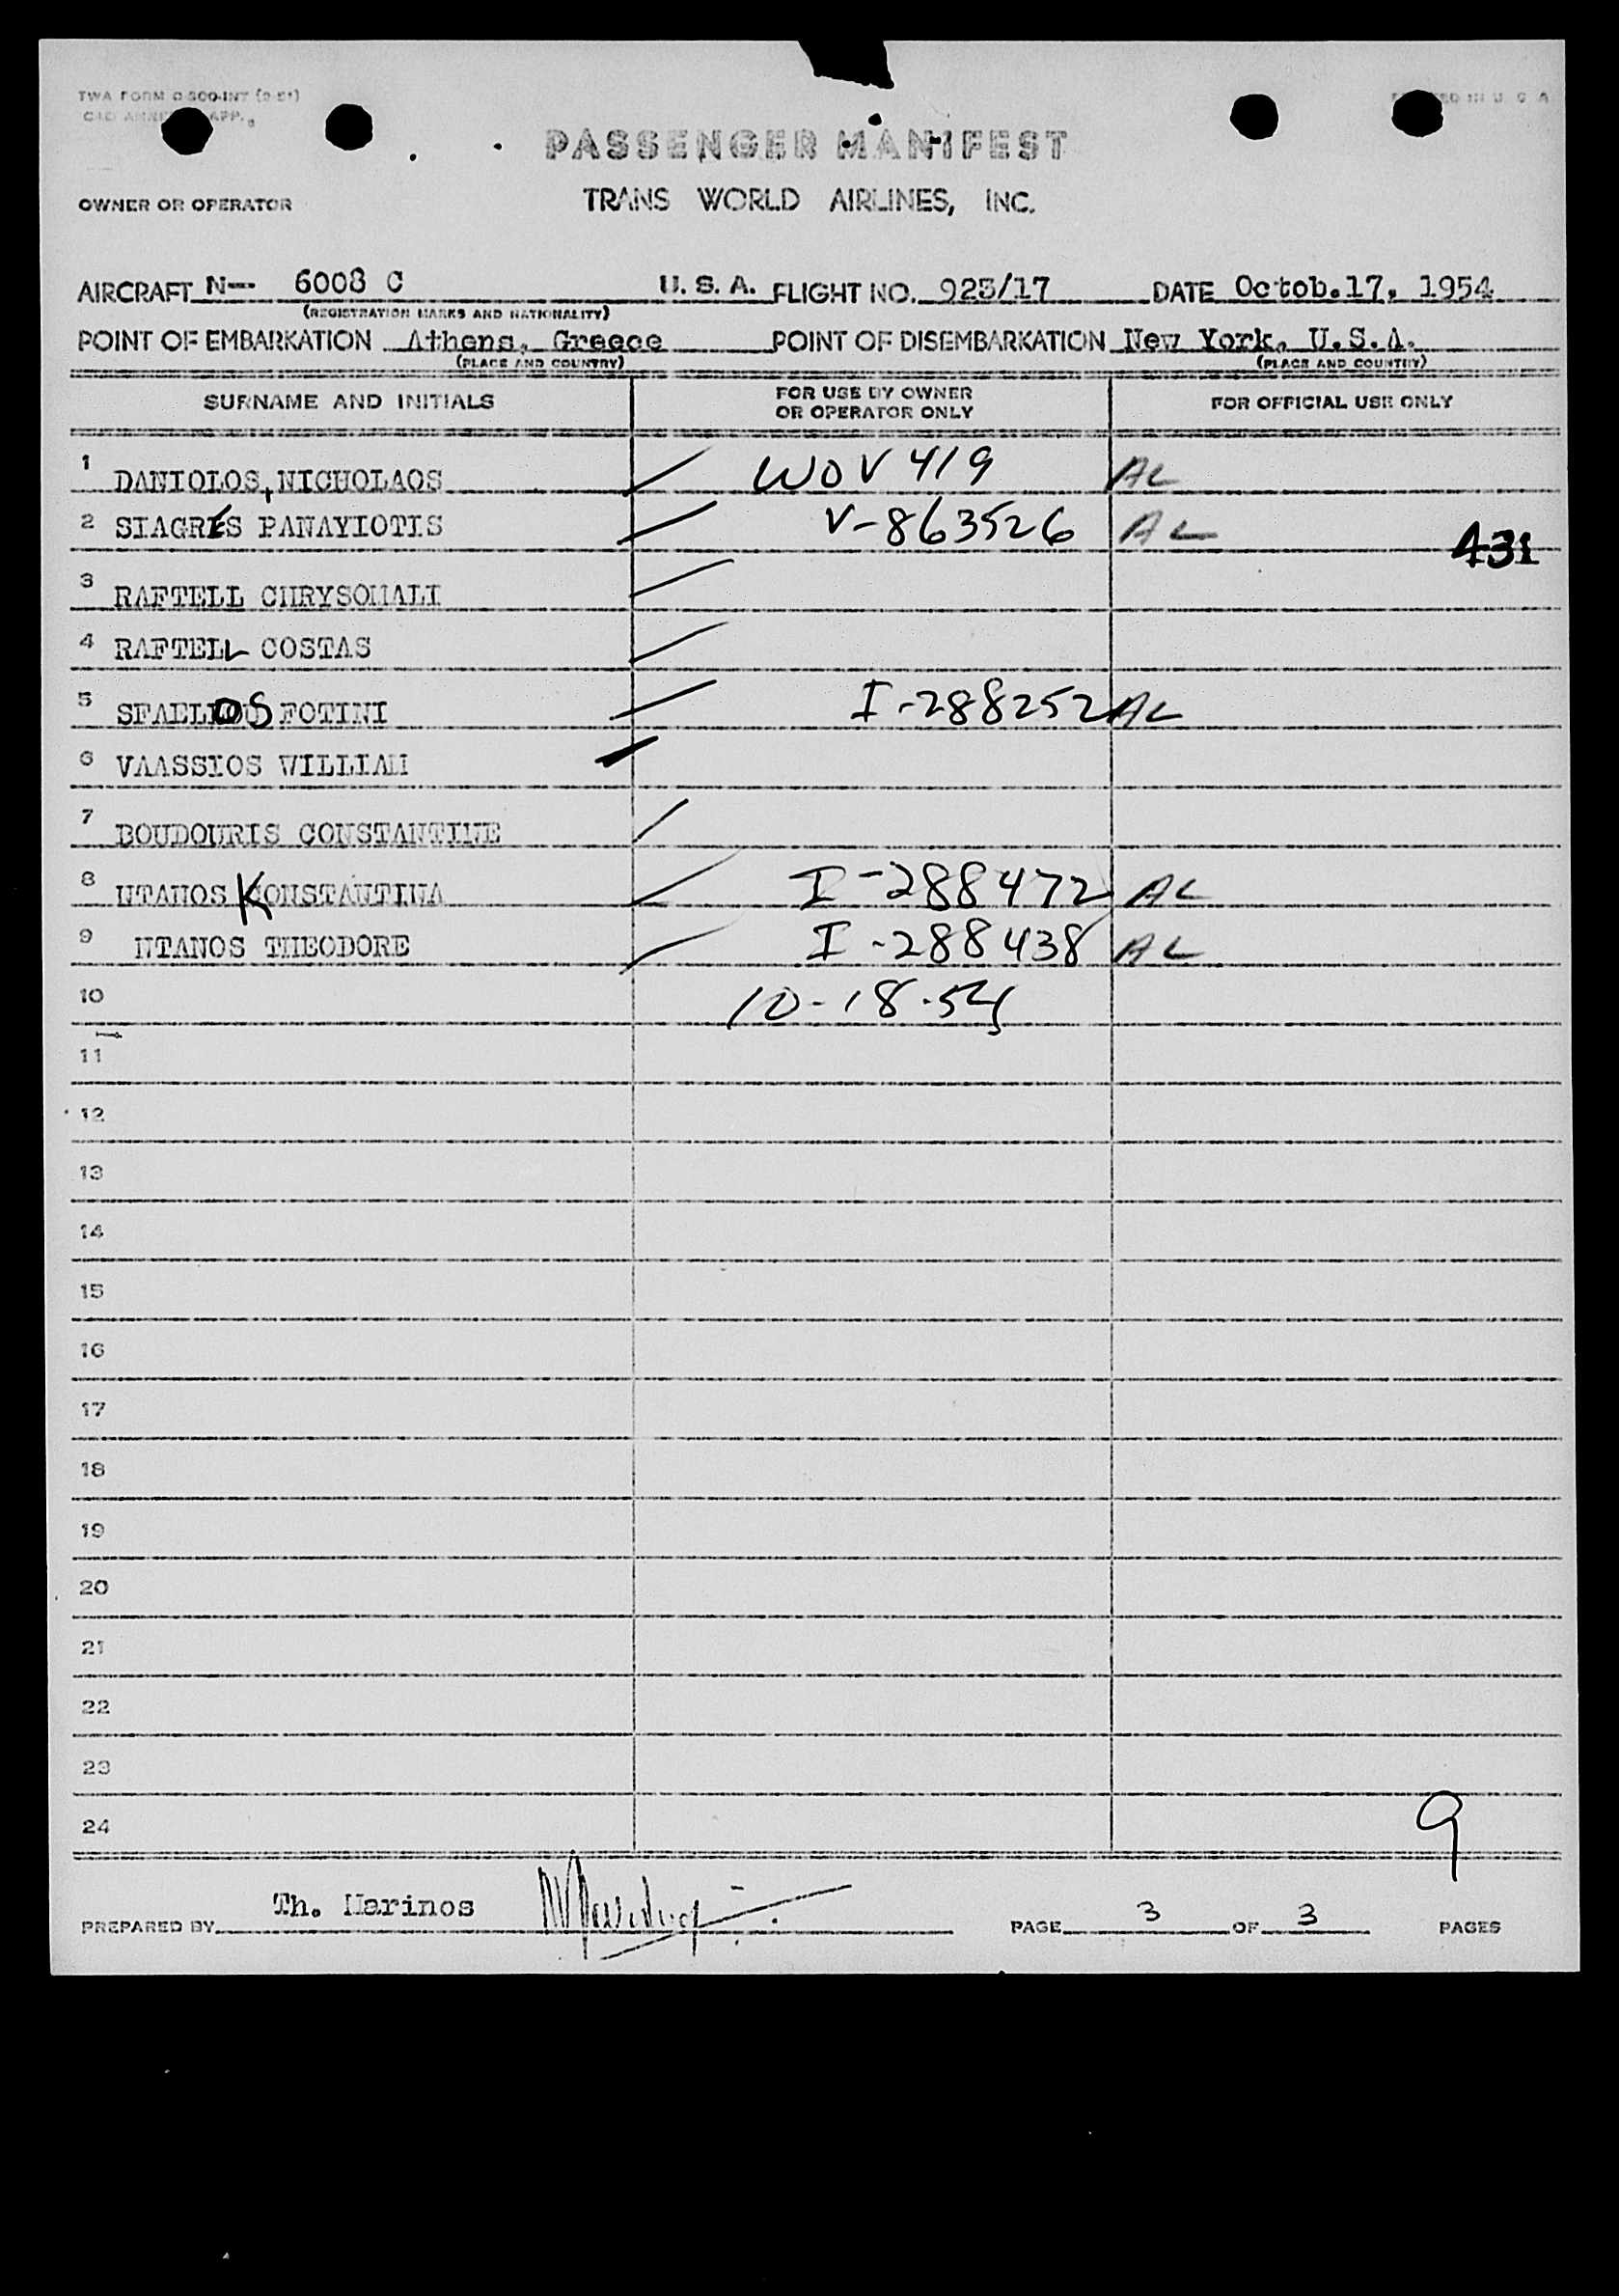 PASSENGER MANIFEST
OWNER OR OPERATOR TRANS WORLD AIRLINES, INC.
AIRCRAFT N-- 6008 C U. S. A. FLIGHT NO. 925/17 DATE Octob.17, 1954
(REGISTRATION MARKS AND NATIONALITY)
POINT OF EMBARKATION Athens, Greece POINT OF DISEMBARKATION New York, U.S.A.
(PLACE AND COUNTRY) (PLACE AND COUNTRY)
SURNAME AND INITIALS FOR USE BY OWNER OR OPERATOR ONLY FOR OFFICIAL USE ONLY
1 DANIOLOS, NICHOLAOS WOV 419 AL
2 SIAGRES PANAYIOTIS V-863526 AL 431
3 RAFTELL CHRYSOMALI
4 RAFTELL COSTAS
5 SFAELLOS FOTINI I-288252 AL
6 VAASSIOS WILLIAM
7 BOUDOURIS CONSTANTINE
8 NTANOS KONSTANTINA I-288472 AL
9 NTANOS THEODORE I-288438 AL
10 10-18-54
11
12
13
14
15
16
17
18
19
20
21
22
23
24 9
PREPARED BY Th. Marinos PAGE 3 OF 3 PAGES